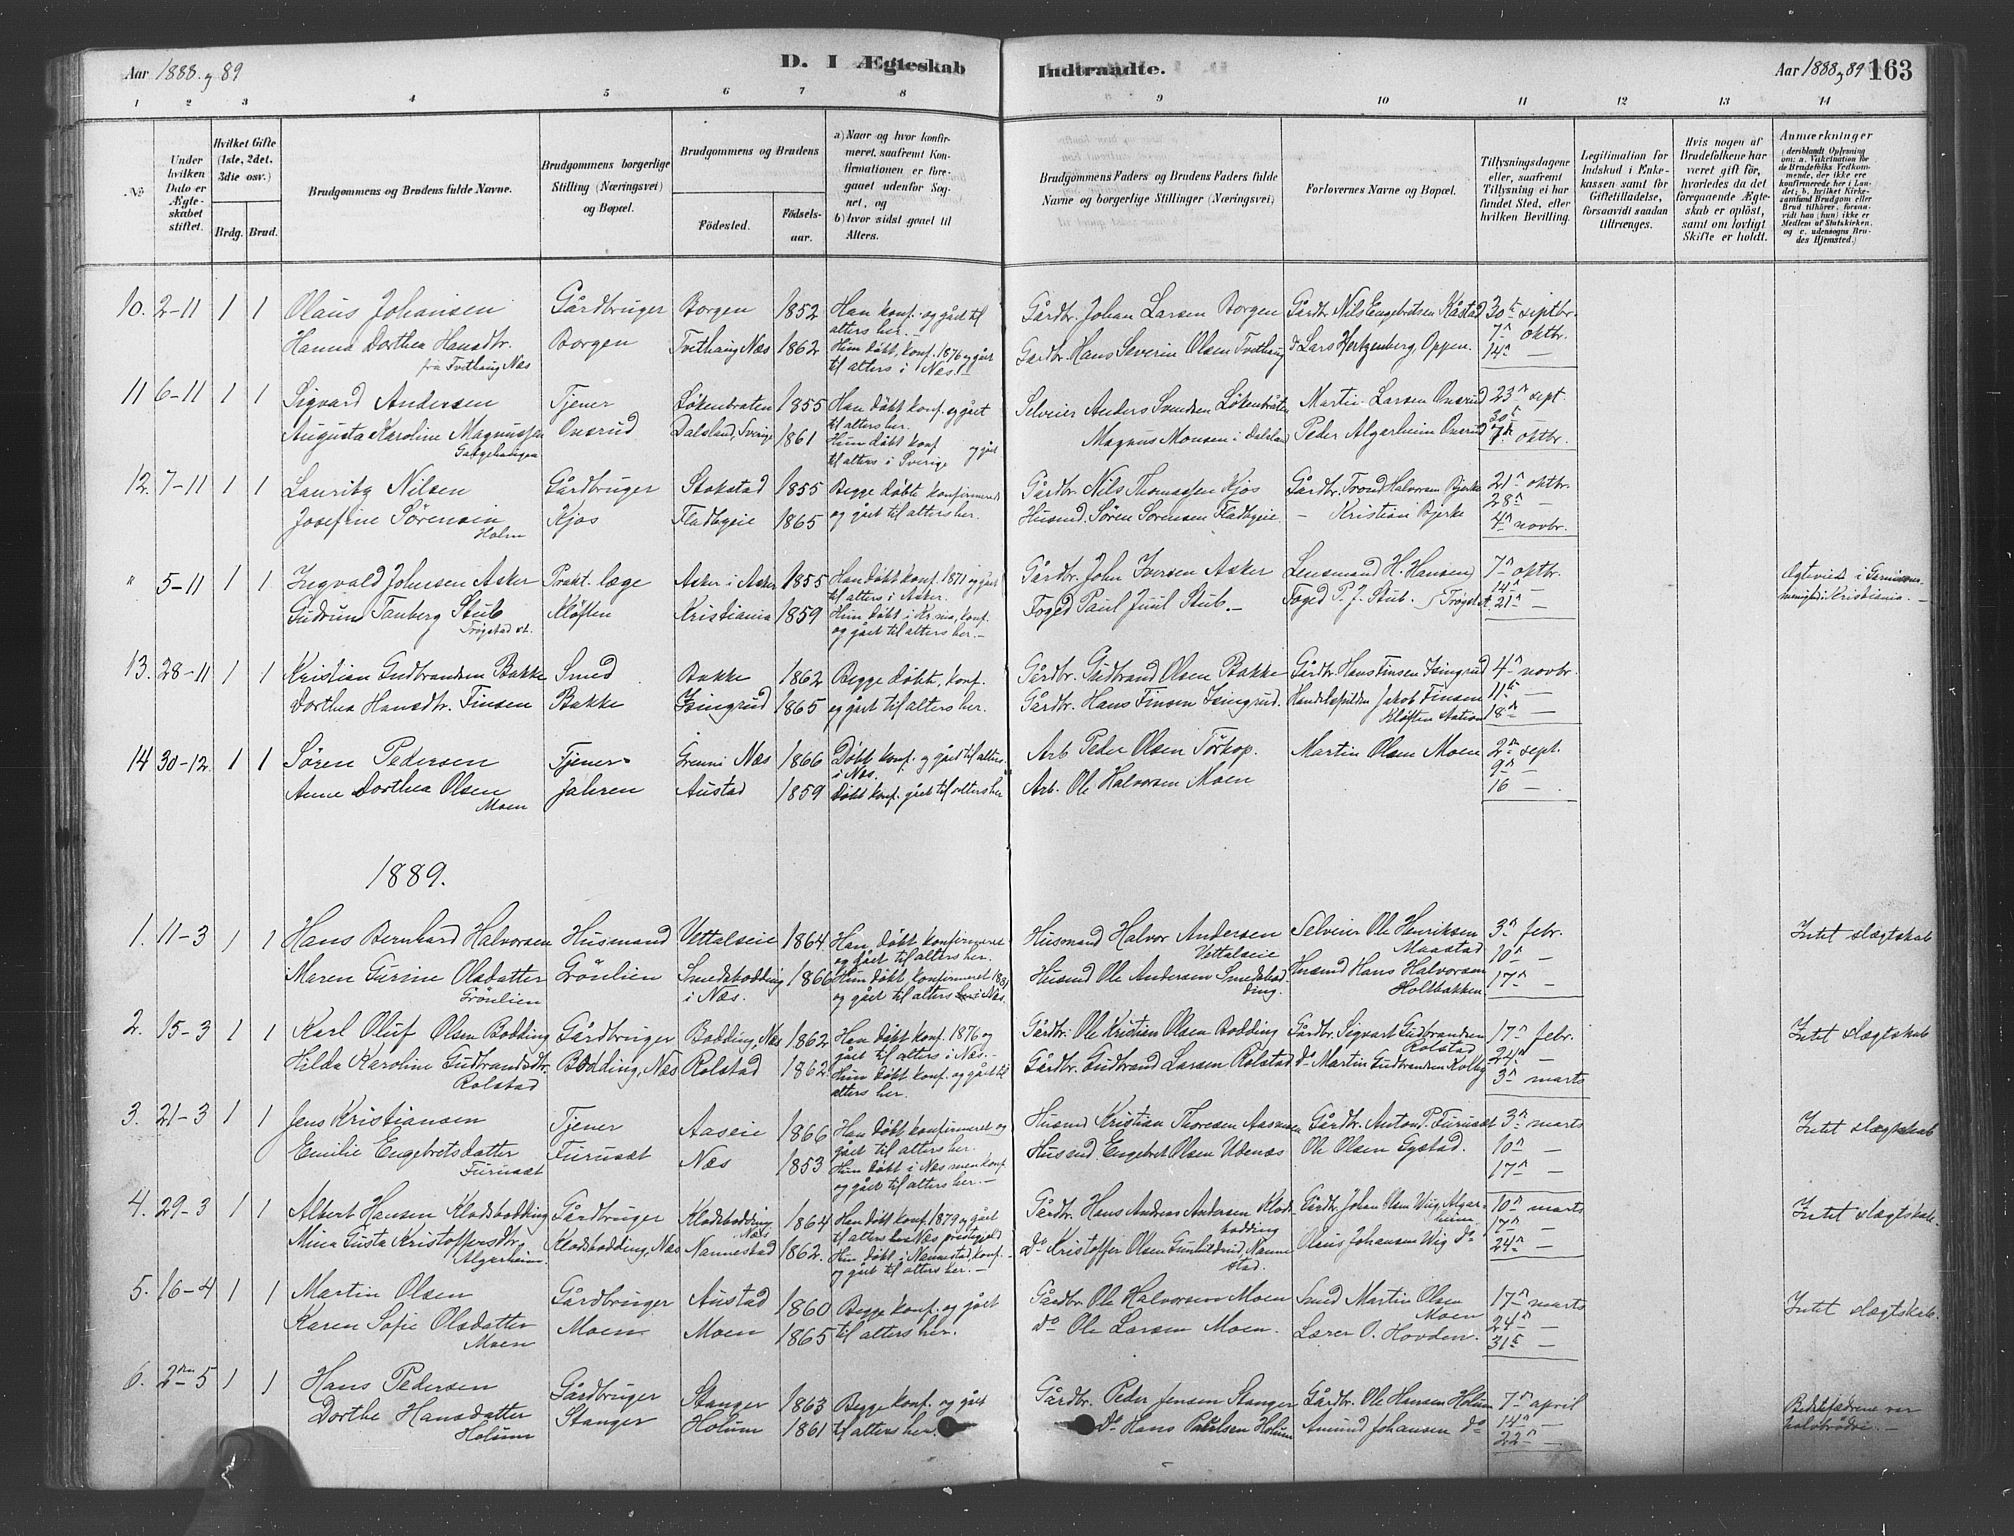 Aar 1888 og 89
D. I Ægteskab
Indtraadte.
Aar 1888 og 89 163
1 2 3 4 5 6 7 8 9 10 11 12 13 14
No.
Under hvilken Dato er Ægteskabet stiftet.
Hvilket Gifte (1ste, 2det, 3die osv.)
Brdg. Brud.
Brudgommens og Brudens fulde Navne.
Brudgommens borgerlige Stilling (Næringsvei) og Bopæl.
Brudgommens og Brudens
Fødested.
Fødselsaar.
a) Naar og hvor konfirmeret, saafremt Konfirmationen er foregaaet udenfor Sognet, og
b) hvor sidst gaaet til Alters.
Brudgommens Faders og Brudens Faders fulde Navne og borgerlige Stillinger (Næringsvei)
Forlovernes Navne og Bopæl.
Tillysningsdagene eller, saafremt Tillysning ei har fundet Sted, efter hvilken Bevilling.
Legitimation for Indskud i Enkekassen samt for Giftetilladelse, forsaavidt saadan tiltrænges.
Hvis nogen af Brudefolkene har været gift før, hvorledes da det foregaaende Ægteskab er opløst, samt om lovligt Skifte er holdt.
Anmærkninger
10. 2-11 1 1 Olaus Johansen Gårdbruger Borgen 1852 Han konf. og gået til alters her. Gårdbr. Johan Larsen Borgen Gårdbr. Nils Engebretsen Kåstad 30te septbr.
Hanna Dorthea Hansdtr. fra Tvithaug Næs Borgen Tvithaug Næs 1862 Hun døbt, konf. 1876 og gået til alters i Næs. Gårdbr. Hans Severin Olsen Tvithaug do Lars Hertzenberg, Oppen. 7n oktbr.
14n —
11 6-11 1 1 Sigvard Andersen Tjener Løkenbråten 1855 Han døbt konf. og gået til alters her. Selveier Anders Svendsen Løkenbråten Martin Larsen Onsrud 23n sept.
Augusta Karoline Magnussen Onsrud Dalsland, Sverige 1861 Hun døbt konf. og gået til alters i Sverige Magnus Monsen i Dalsland Peder Algarheim Onsrud 30te
7n oktbr.
12. 7-11 1 1 Lauritz Nilsen Gårdbruger Stokstad 1855 Begge døbte konfirmeret og gået til alters her. Gårdbr. Nils Thomassen Kjos Gårdbr. Trond Halvorsen Bjerke 21n oktbr.
Josefine Sørensen Holm Kjos Fladbyeie 1865 Husmd. Søren Sørensen Fladbyeie — Kristian Bjerke 28n —
4n novbr.
" 5-11 1 1 Ingvald Johnsen Asker Prakt. læge Asker i Asker 1855 Han døbt konf. 1871 og gået til alters i Asker. Gårdbr. John Iversen Asker Lensmand H. Hansen 7n oktbr. Ægteviet i Garnisonsmenighed i Kristiania. —
Gudrun Tanberg Stub Trøgstad st. Kløften Kristiania 1859 Hun døbt i Kr.nia, konf. og gået til alters her. — Foged Paul Juul Stub. — Foged P. J. Stub. Trøgst. 14n —
21n —
13. 28-11 1 1 Kristian Gudbrandsen Bakke Smed Bakke 1862 Begge døbt, konf. og gået til alters her. Gårdbr. Gudbrand Olsen Bakke Gårdbr. Hans Finsen Isingrud 4n novbr.
Dorthea Hansdtr. Finsen Bakke Isingrud 1865 Gårdbr. Hans Finsen Isingrud. Handelsfuldm. Jakob Finsen Kløften Station 11te —
18n —
14 30-12 1 1 Søren Pedersen Tjener Grenni Næs 1866 Døbt konf. og gået til alters i Næs. Arb Peder Olsen Tørkop. Martin Olsen Moen 2n sept.
Anne Dorthea Olsen Moen Jahren Austad 1859 Døbt konf. gået til alters her Arb. Ole Halvorsen Moen 9n —
16 —
1889.
1. 11-3 1 1 Hans Bernhard Halvorsen Husmand Vettalseie 1864 Han døbt konfirmeret og gået til alters her. Husmand Halvor Andersen Vettalseie Selveier Ole Henriksen Maastad 3n febr. Intet slægtskab
Maren Gurine Olsdatter Grönlien Grönlien Smedsbødding i Næs. 1866 Hun døbt, konfirmeret 1881 og gået til alters i Næs. Husmd Ole Andersen Smedsbødding. Husmd Hans Halvorsen Holtbakken 10n —
17n —
2. 15-3 1 1 Karl Oluf Olsen Bødding Gårdbruger Bødding, Næs 1862 Han døbt konf. 1876 og gået til alters i Næs. — Gårdbr. Ole Kristian Olsen Bødding Gårdbr. Sigvart Gudbrandsen Rolstad 17n febr. Intet slægtskab
Helda Karoline Gudbrandsdtr. Rolstad Bødding, Næs Rolstad 1862. Hun døbt konf. og gået til alters her. Gårdbr. Gudbrand Larsen Rolstad do Martin Gudbrandsen Kolby 24n —
3n marts
3. 21-3 1 1 Jens Kristiansen Tjener Aaseie 1866 Han døbt konfirmeret og gået til alters her. Husmd Kristian Thoresen Aaseie Gårdbr. Anton P. Furusæt 3n marts Intet slægtskab
Emilie Engebretsdatter Furusæt Furusæt Næs 1853 Hun døbt i Næs men konf. og gået til alters her. — Husmd. Engebret Olsen Udenæs Ole Olsen Egstad. 10n —
17n —
4. 29-3 1 1 Albert Hansen Klodsbødding Gårdbruger Klodsbødding Næs 1864 Han døbt konf. 1879 og gået til alters Næs prestegjeld Gårdbr. Hans Andreas Andersen Klodsbødding Gårdbr. Johan Olsen Wig, Algarheim 10n marts Intet slægtskab.
Mina Gusta Kristoffersdtr. Algarheim Klodsbødding, Næs Nannestad 1862. Hun døbt i Nannestad, konf. og gået til alters her. — do Kristoffer Olsen Gunhildrud, Nannestad. Olaus Johansen Wig do 17n —
24n —
5. 16-4 1 1 Martin Olsen Gårdbruger Austad 1860 Begge konf. og gået til alters her. Gårdbr. Ole Halvorsen Moen Smed Martin Olsen Moen 17n marts Intet slægtskab.
Karen Sofie Olsdatter Moen Moen Moen 1865 do Ole Larsen Moen. Lærer O. Hovden. 24n —
31te —
6. 2den-5 1 1 Hans Pedersen Gårdbruger Stanger 1863 Begge konf. og gået til alters her. Gårdbr. Peder Jensen Stanger Gårdbr. Ole Hansen Holum 7n april Bedstefædrene var halvbrødre. —
Dorthe Hansdatter Holum Stanger Holum 1861 Do Hans Paulsen Holum Amund Johansen do 14n —
22n —